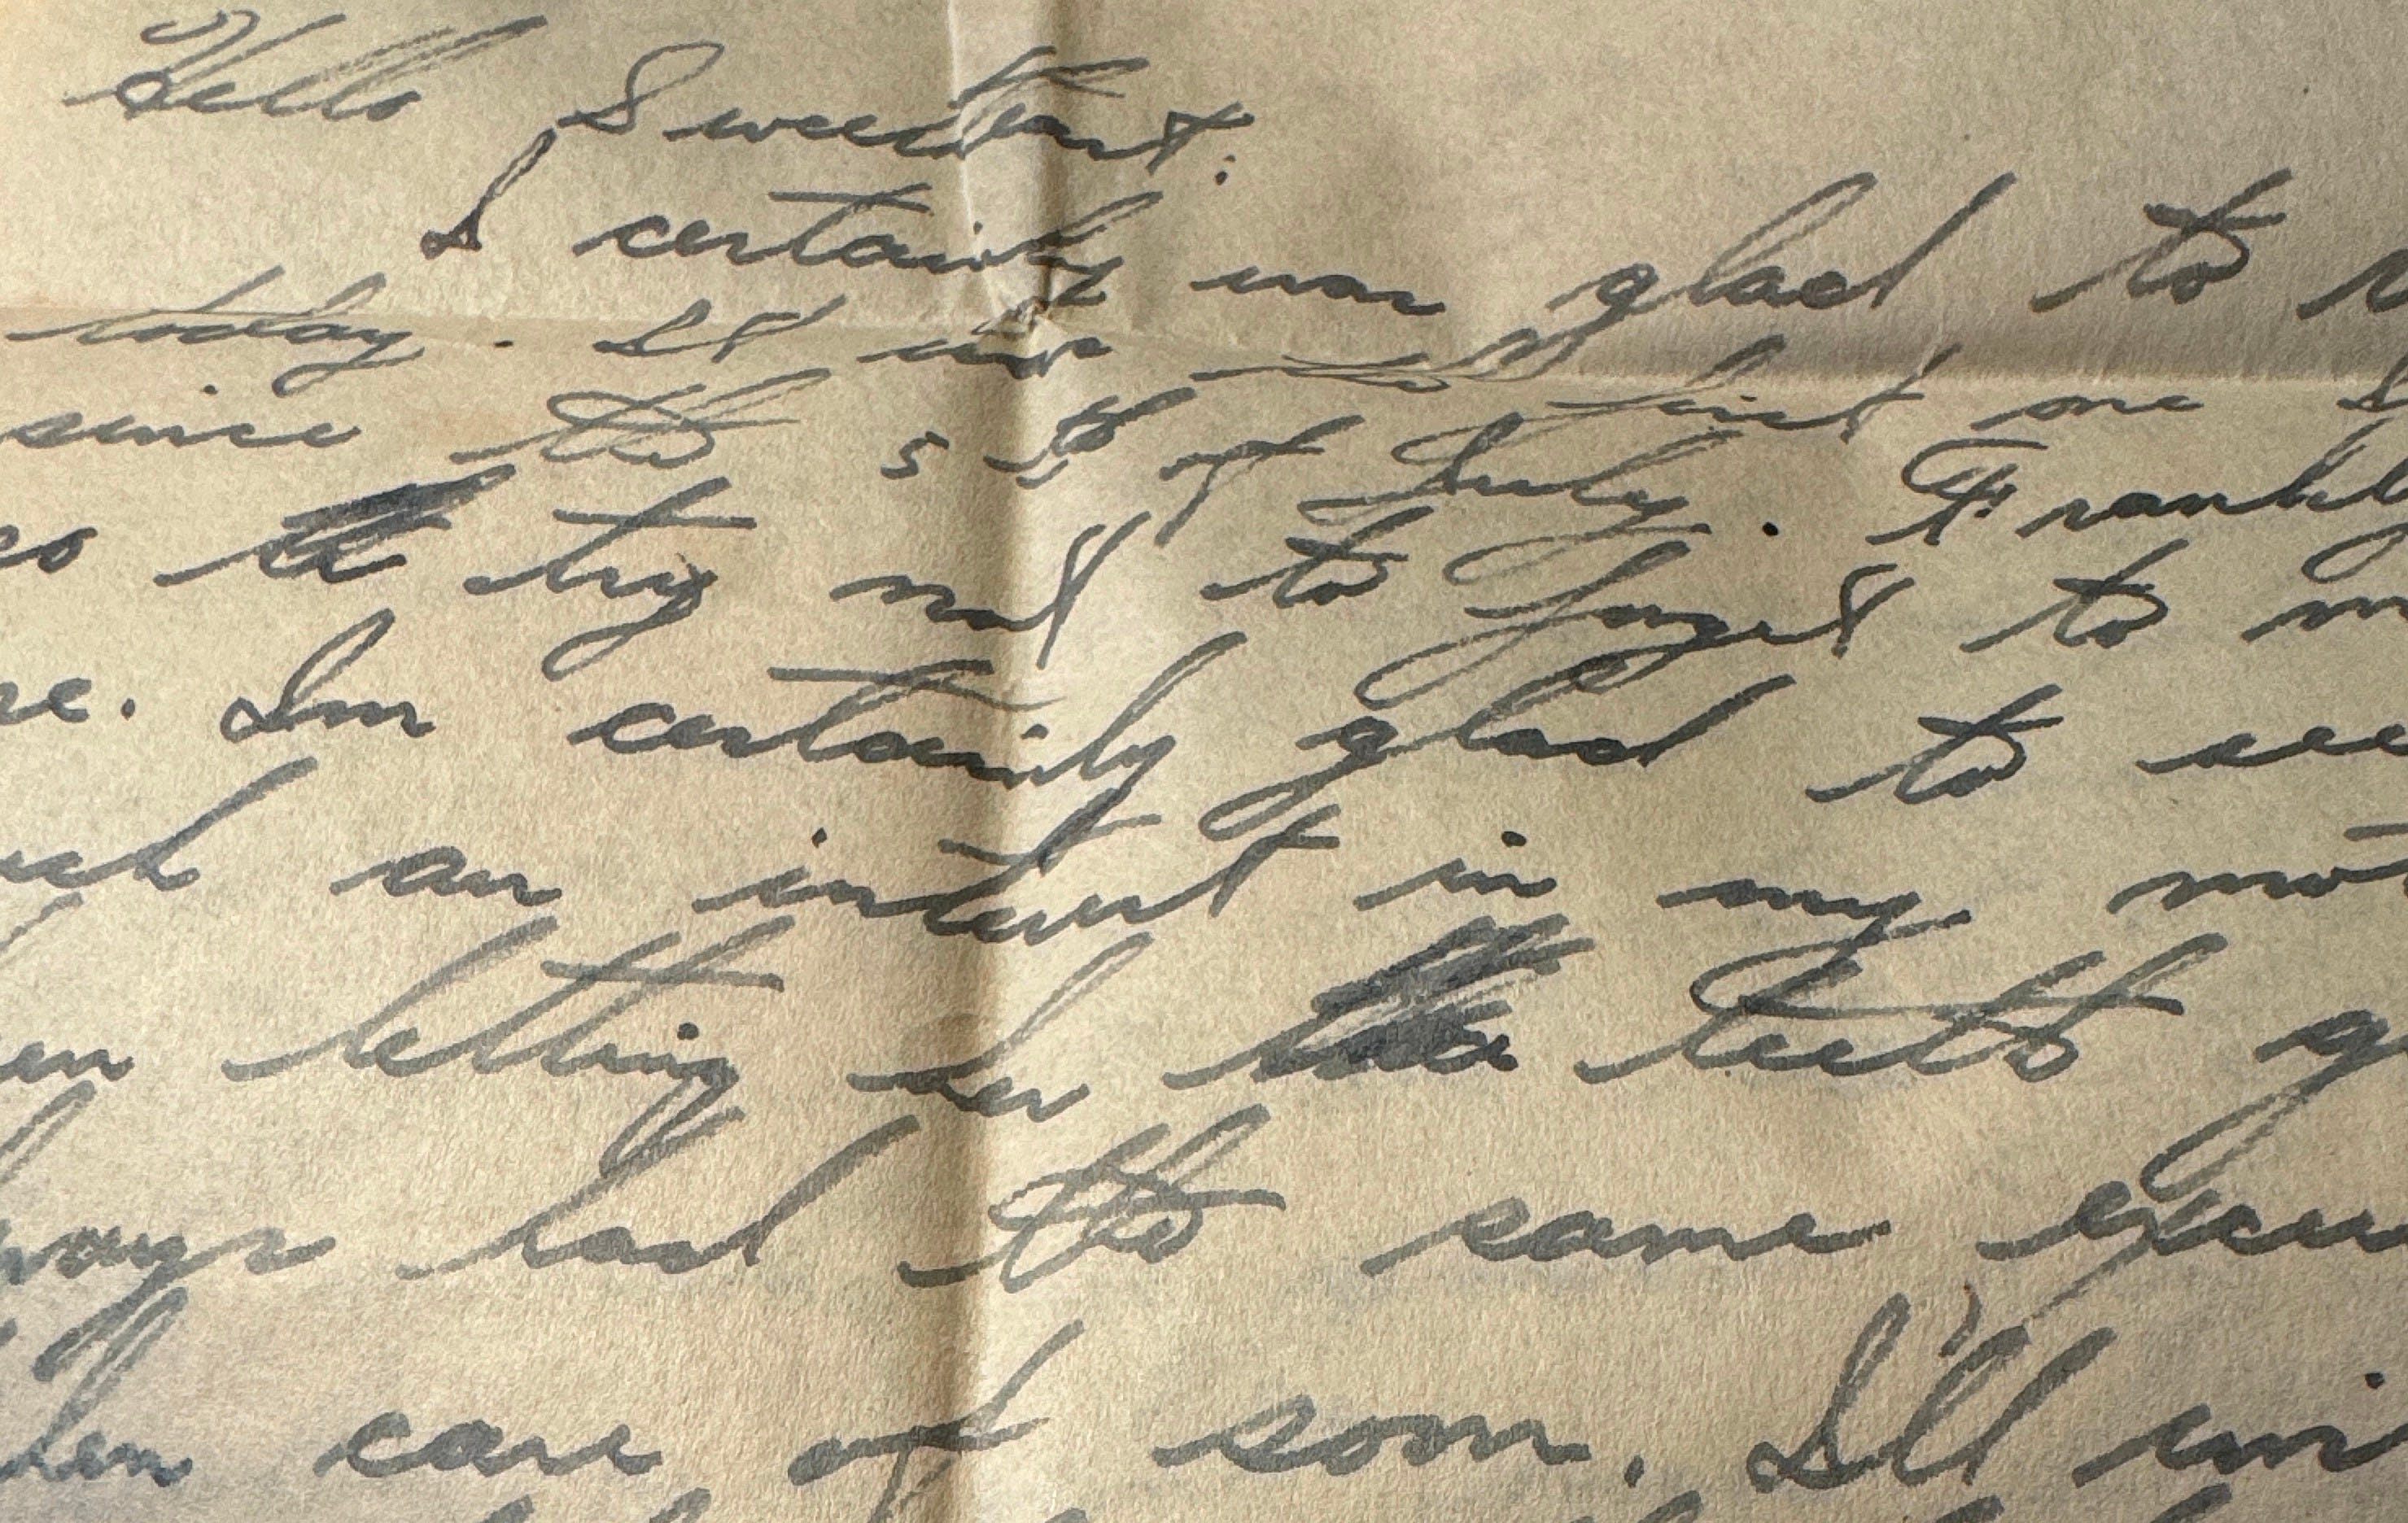 Hello Sweetheart:
I certainly was glad to
today. It was the first one I
since the 5th of July. Frankly
so try not to forget to
re. Im certainly glad to see
uch an interest in my mot
en letting her teeth g
always had the same excu
ken care of soon. I'll wri